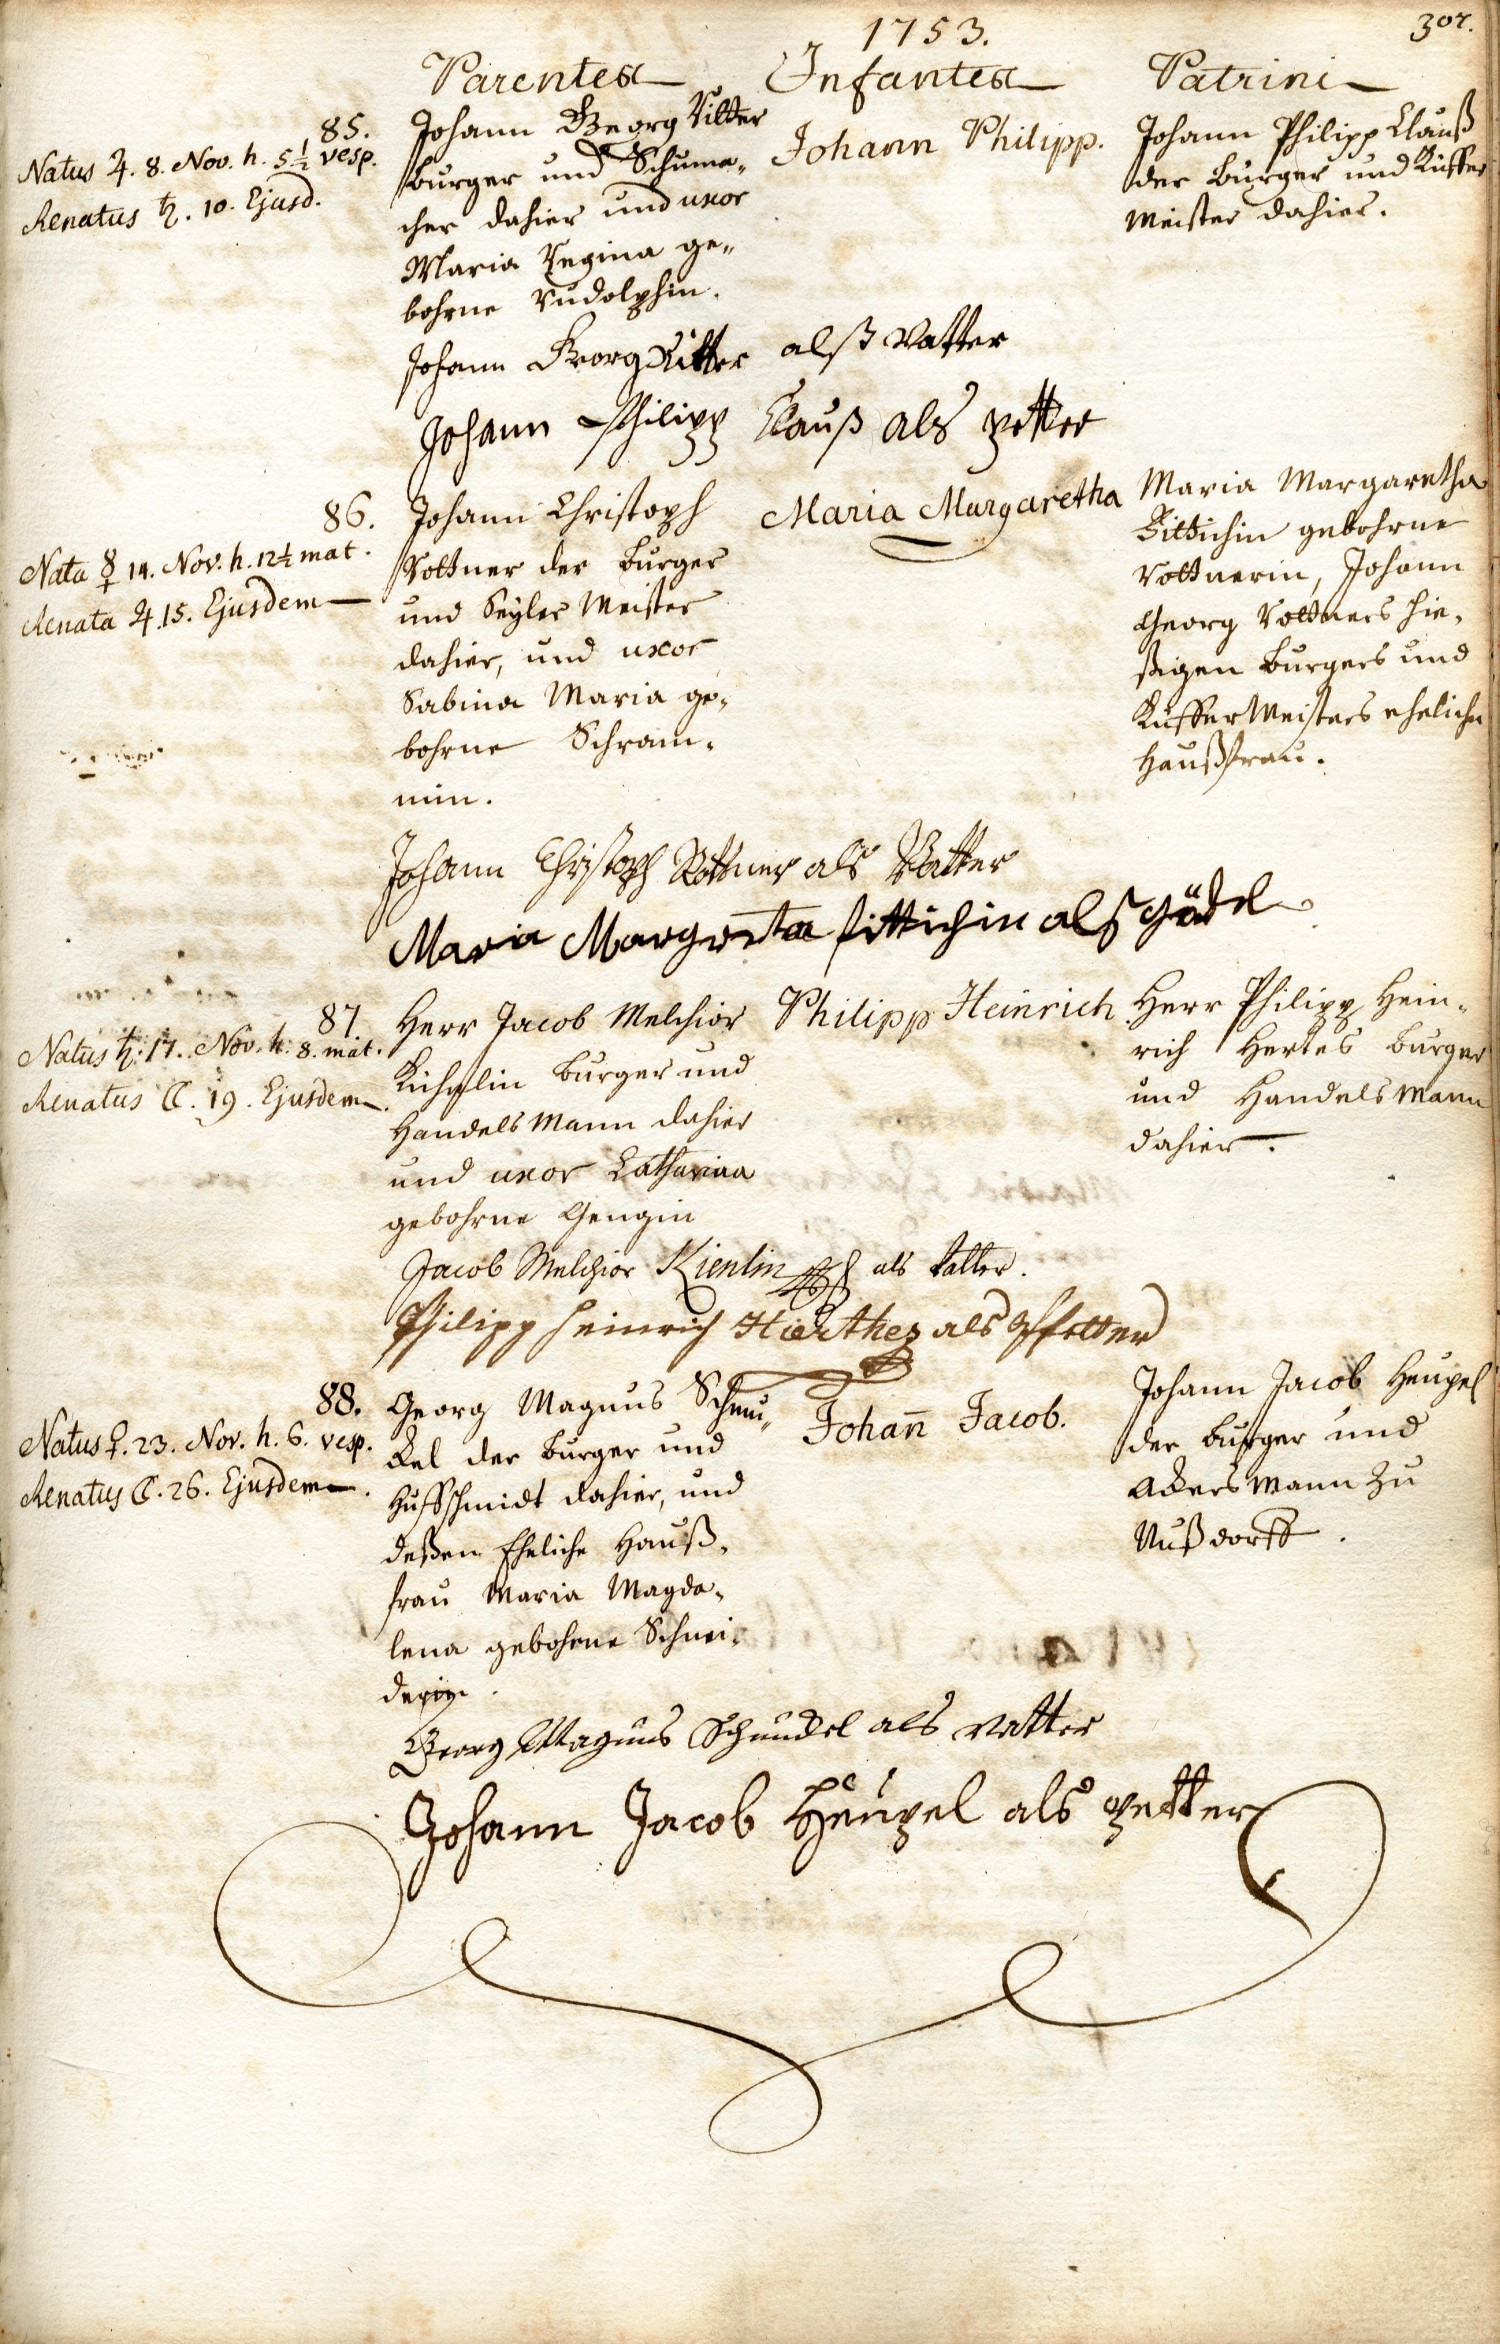 1753.
307.
Parentes
Infantes
Patrini
85.
Natus ♃. 8. Nov. h. 5½ vesp.
Renatus ♄. 10. Ejusd.
Johann Georg Ritter
burger und Schuma-
cher dahier und uxor
Maria Regina ge-
bohrne Rudolphin.
Johann Philipp.
Johann Philipp Clauß
der burger und Küffer
Meister dahier.
Johann Georg Ritter alß Vatter
Johann Philipp Clauß als petter
86.
Nata ☿ 14. Nov. h. 12½ mat.
Renata ♃. 15. Ejusdem
Johann Christoph
Rottner der burger
und Seyler Meister
dahier, und uxor
Sabina Maria ge-
bohrne Schram-
min.
Maria Margaretha
Maria Margaretha
Sittichin gebohrne
Rottnerin, Johann
Georg Rottners hie-
sigen burgers und
Küffer Meisters ehelicher
Haußfrau.
Johann Christoph Rottner als Vatter
Maria Margreta sittichin alß gödel
87.
Natus ♄. 17. Nov. h. 8. mat.
Renatus ☾. 19. Ejusdem
Herr Jacob Melchior
Kühnlin burger und
Handels Mann dahier
und uxor Catharina
gebohrne Gengin
Philipp Heinrich
Herr Philipp Hein-
rich Hertes burger
und Handels Mann
dahier.
Jacob Melchior Kienlin als Vatter.
Philipp Heinrich Hierthes als Pfetter
88.
Natus ♀. 23. Nov. h. 6. vesp.
Renatus ☾. 26. Ejusdem.
Georg Magnus Schnu-
del der burger und
Huffschmidt dahier, und
deßen Eheliche Hauß-
frau Maria Magda-
lena gebohrne Schnei-
derin.
Johan̄ Jacob.
Johann Jacob Heupel
der burger und
Ackers Mann zu
Nußdorff.
Georg Magnus Schnudel als Vatter
Johann Jacob Heupel als petter